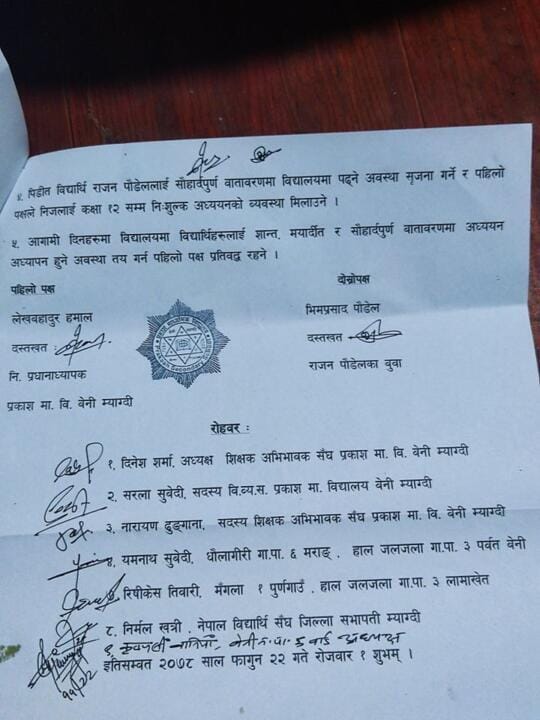 ४. पिडीत विद्यार्थि राजन पौडेललाई सौहार्दपुर्ण वातावरणमा विद्यालयमा पढ्ने अवस्था सृजना गर्ने र पहिलो
पक्षले निजलाई कक्षा १२ सम्म निःशुल्क अध्ययनको व्यवस्था मिलाउने ।
५. आगामी दिनहरुमा विद्यालयमा विद्यार्थिहरुलाई शान्त, मयार्दीत र सौहार्दपुर्ण वातावरणमा अध्ययन
अध्यापन हुने अवस्था तय गर्न पहिलो पक्ष प्रतिवद्ध रहने ।
पहिलो पक्ष
दोस्रोपक्ष
लेखवहादुर हमाल
भिमप्रसाद पौडेल
दस्तखत :
दस्तखत
नि. प्रधानाध्यापक
राजन पौडेलका बुवा
प्रकाश मा. वि. वेनी म्याग्दी
रोहवर :
१. दिनेश शर्मा, अध्यक्ष शिक्षक अभिभावक सँघ प्रकाश मा. वि. वेनी म्याग्दी
२. सरला सुवेदी, सदस्य वि.व्य.स. प्रकाश मा. विद्यालय वेनी म्याग्दी
३. नारायण ढुङ्गाना, सदस्य शिक्षक अभिभावक सँघ प्रकाश मा. वि. वेनी म्याग्दी
४. यमनाथ सुवेदी, धौलागीरी गा.पा. ६ मराङ , हाल जलजला गा.पा. ३ पर्वत वेनी
रिषीकेस तिवारी, मँगला १ पुर्णगाउँ , हाल जलजला गा.पा. ३ लामाखेत
८. निर्मल खत्री , नेपाल विद्यार्थि सँघ जिल्ला सभापती म्याग्दी
इतिसम्वत २०७८ साल फागुन २२ गते रोजवार १ शुभम् ।